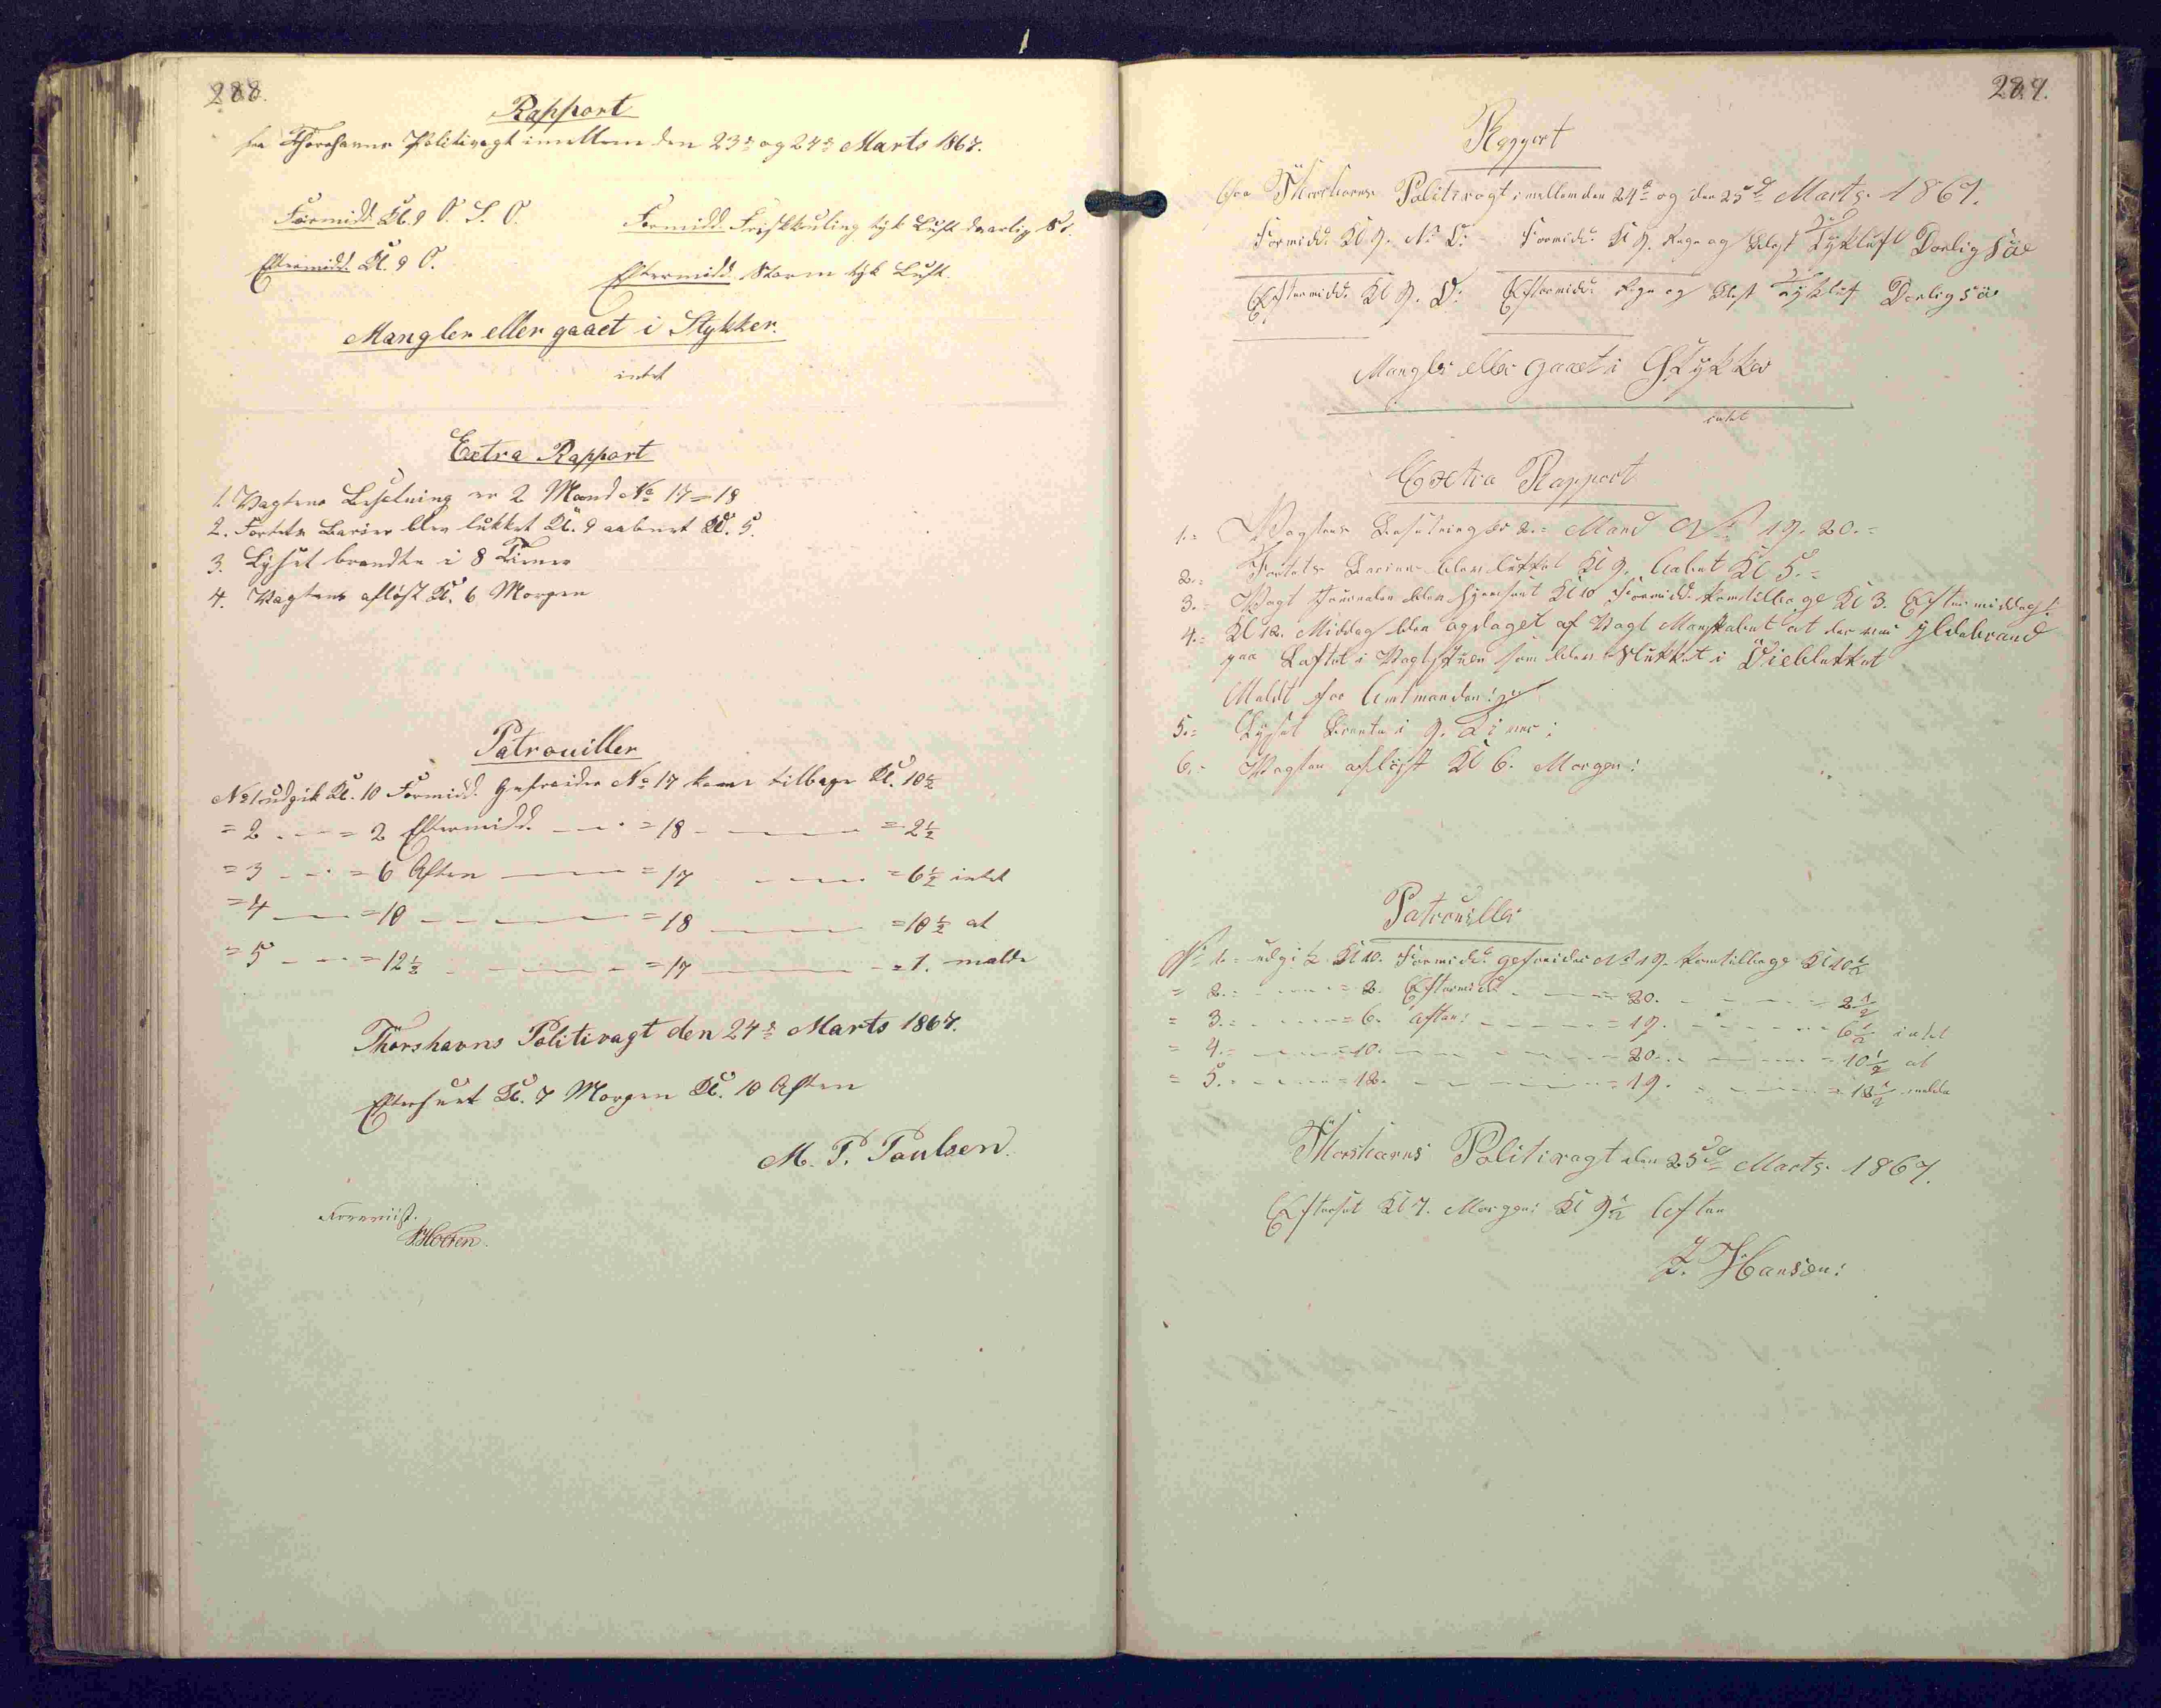 288.
Rapport
fra Thorshavns Politivagt imellem den 23de og 24de Marts 1867.
Formidd. Kl. 9 O. S. O. Formidd. Friskkuling tyk Luft daarlig Sö.
Eftermidd. Kl. 9 O. Eftermidd. Storm tyk Luft.
Mangler eller gaaet i Stykker.
intet
Extra Rapport
1. Vagtens Besetning er 2 Mand No 17 = 18
2. Fortets Barier blev lukket Kl. 9 aabnet Kl. 5.
3. Lyset brendte i 8 Timer
4. Vagtens aflöst Kl. 6 Morgen
Patrouiller
No 1 udgik Kl. 10 Formidd. Gefreider No 17 kom tilbage Kl. 10½
= 2 - - = 2 Eftermidd. - - = 18 - - = 2½
= 3 - - = 6 Aften - - = 17 - - = 6½ intet
= 4 - - = 10 - - = 18 - - = 10½ at
= 5 - - = 12½ - - = 17 - - = 1. melde
Thorshavns Politivagt den 24de Marts 1867.
Efterseet Kl. 7 Morgen Kl. 10 Aften
M. P. Poulsen.
Foreviist.
HHolten.
289.
Rapport
fra Thorshavns Politivagt imellem den 24de og den 25de Marts. 1867.
Formidd. Kl 9. N. O: Formidd. Kl 9. Regn og Blest Tykluft Dorlig Söe
Eftermidd. Kl 9. O: Eftermidd. Regn og Blest Tykluft Dorlig Söe
Mangler eller gaaet i Stykker
intet
Extra Rapport
1.= Vagtens Besetning er 2.= Mand No 19. 20.=
2.= Fortets Barier blev lukket Kl 9. Aabnet Kl 5.=
3.= Vagt Journalen blev hjemsent Kl 10 Formidd. kom tilbage Kl 3. Eftermiddag:
4.= Kl 12. Middag blev opdaget af Vagt Manskabet at der var Ildebrand
paa Loftet i Vagtstuen som blev slukket i Öieblikket
Meldt for Amtmanden:
5.= Lyset Brente i 9. Timer:
6.= Vagten aflöst Kl 6. Morgen:
Patrouiller
No 1.= udgik Kl 10. Formidd. gefreider No 19. kom tilbage Kl 10½
= 2.= - - = 2. Eftermidd. - - = 20. - - = 2½
= 3.= - - = 6. Aften: - - = 19. - - = 6½ intet
= 4.= - - = 10. - - = 20. - - = 10½ at
= 5.= - - = 12. - - = 19. - - = 12½ melde
Thorshavns Politivagt den 25de Marts. 1867.
Efterset Kl 7. Morgen: Kl 9½ Aften
J. Hansen: